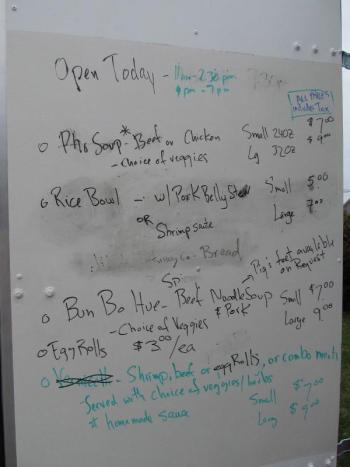 Open Today - 11am - 2:30pm
4pm - 7pm
ALL PRICES
include Tax
o Pho Soup* - Beef or Chicken Small 24oz $7.00
- choice of veggies Lg 32oz $9.00
o Rice Bowl - w/ Pork Belly Stew Small 5.00
OR Large 7.00
Shrimp saute
Bread
Spi
- Pig's feet available
on Request
o Bun Bo Hue - Beef Noodle Soup Small $7.00
& Pork
- Choice of Veggies Large 9.00
o Egg Rolls $3.00/ea
o - Shrimp, beef or egg Rolls, or combo
Served with choice of veggies/herbs Small $7.00
* homemade sauce Large $9.00